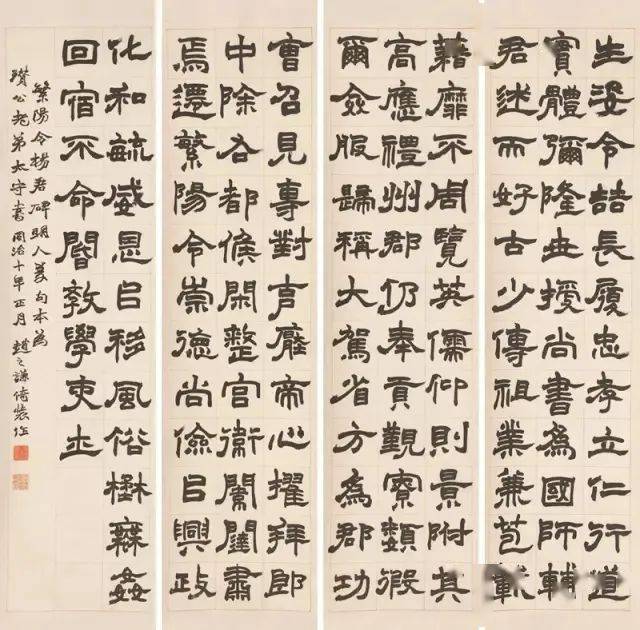 生姿令喆長履忠孝立仁行道
實體彌隆世授尚書為國師輔
君述而好古少傳祖業兼苞載
籍靡不周覽英儒仰則景附其
高應禮州郡仍奉貢覲寮類假
爾僉服歸稱大駕省方為郡功
曹召見專對言帝心擢拜郎
中除右都候閑整官衛闈闥肅
焉遷繁陽令崇德尚儉㠯興政
化和毓威恩㠯移風俗姦
回宿不命閽教學吏士
繁陽令楊君碑明人雙勾本為
瓚公老弟太守書同治十年正月趙之謙倚裝作